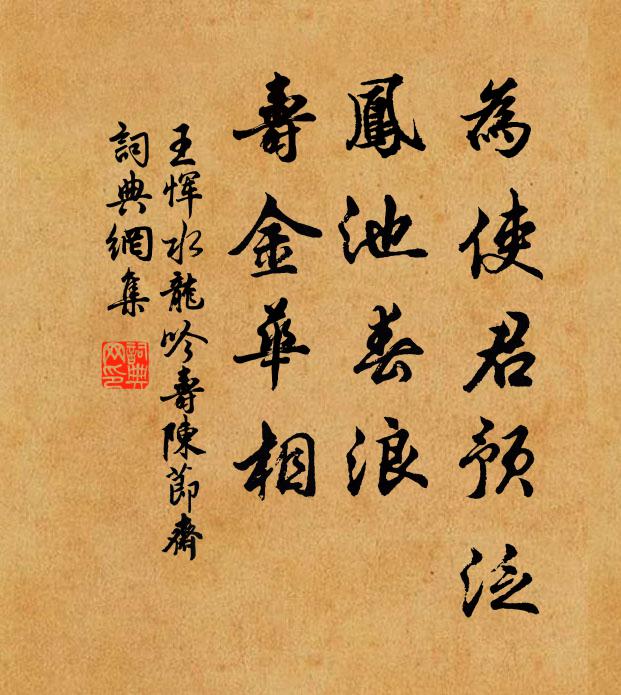 為使君預泛
鳳池春浪
壽金華相
王惲水龍吟壽陳節齋
詞典網集
詞典
网印